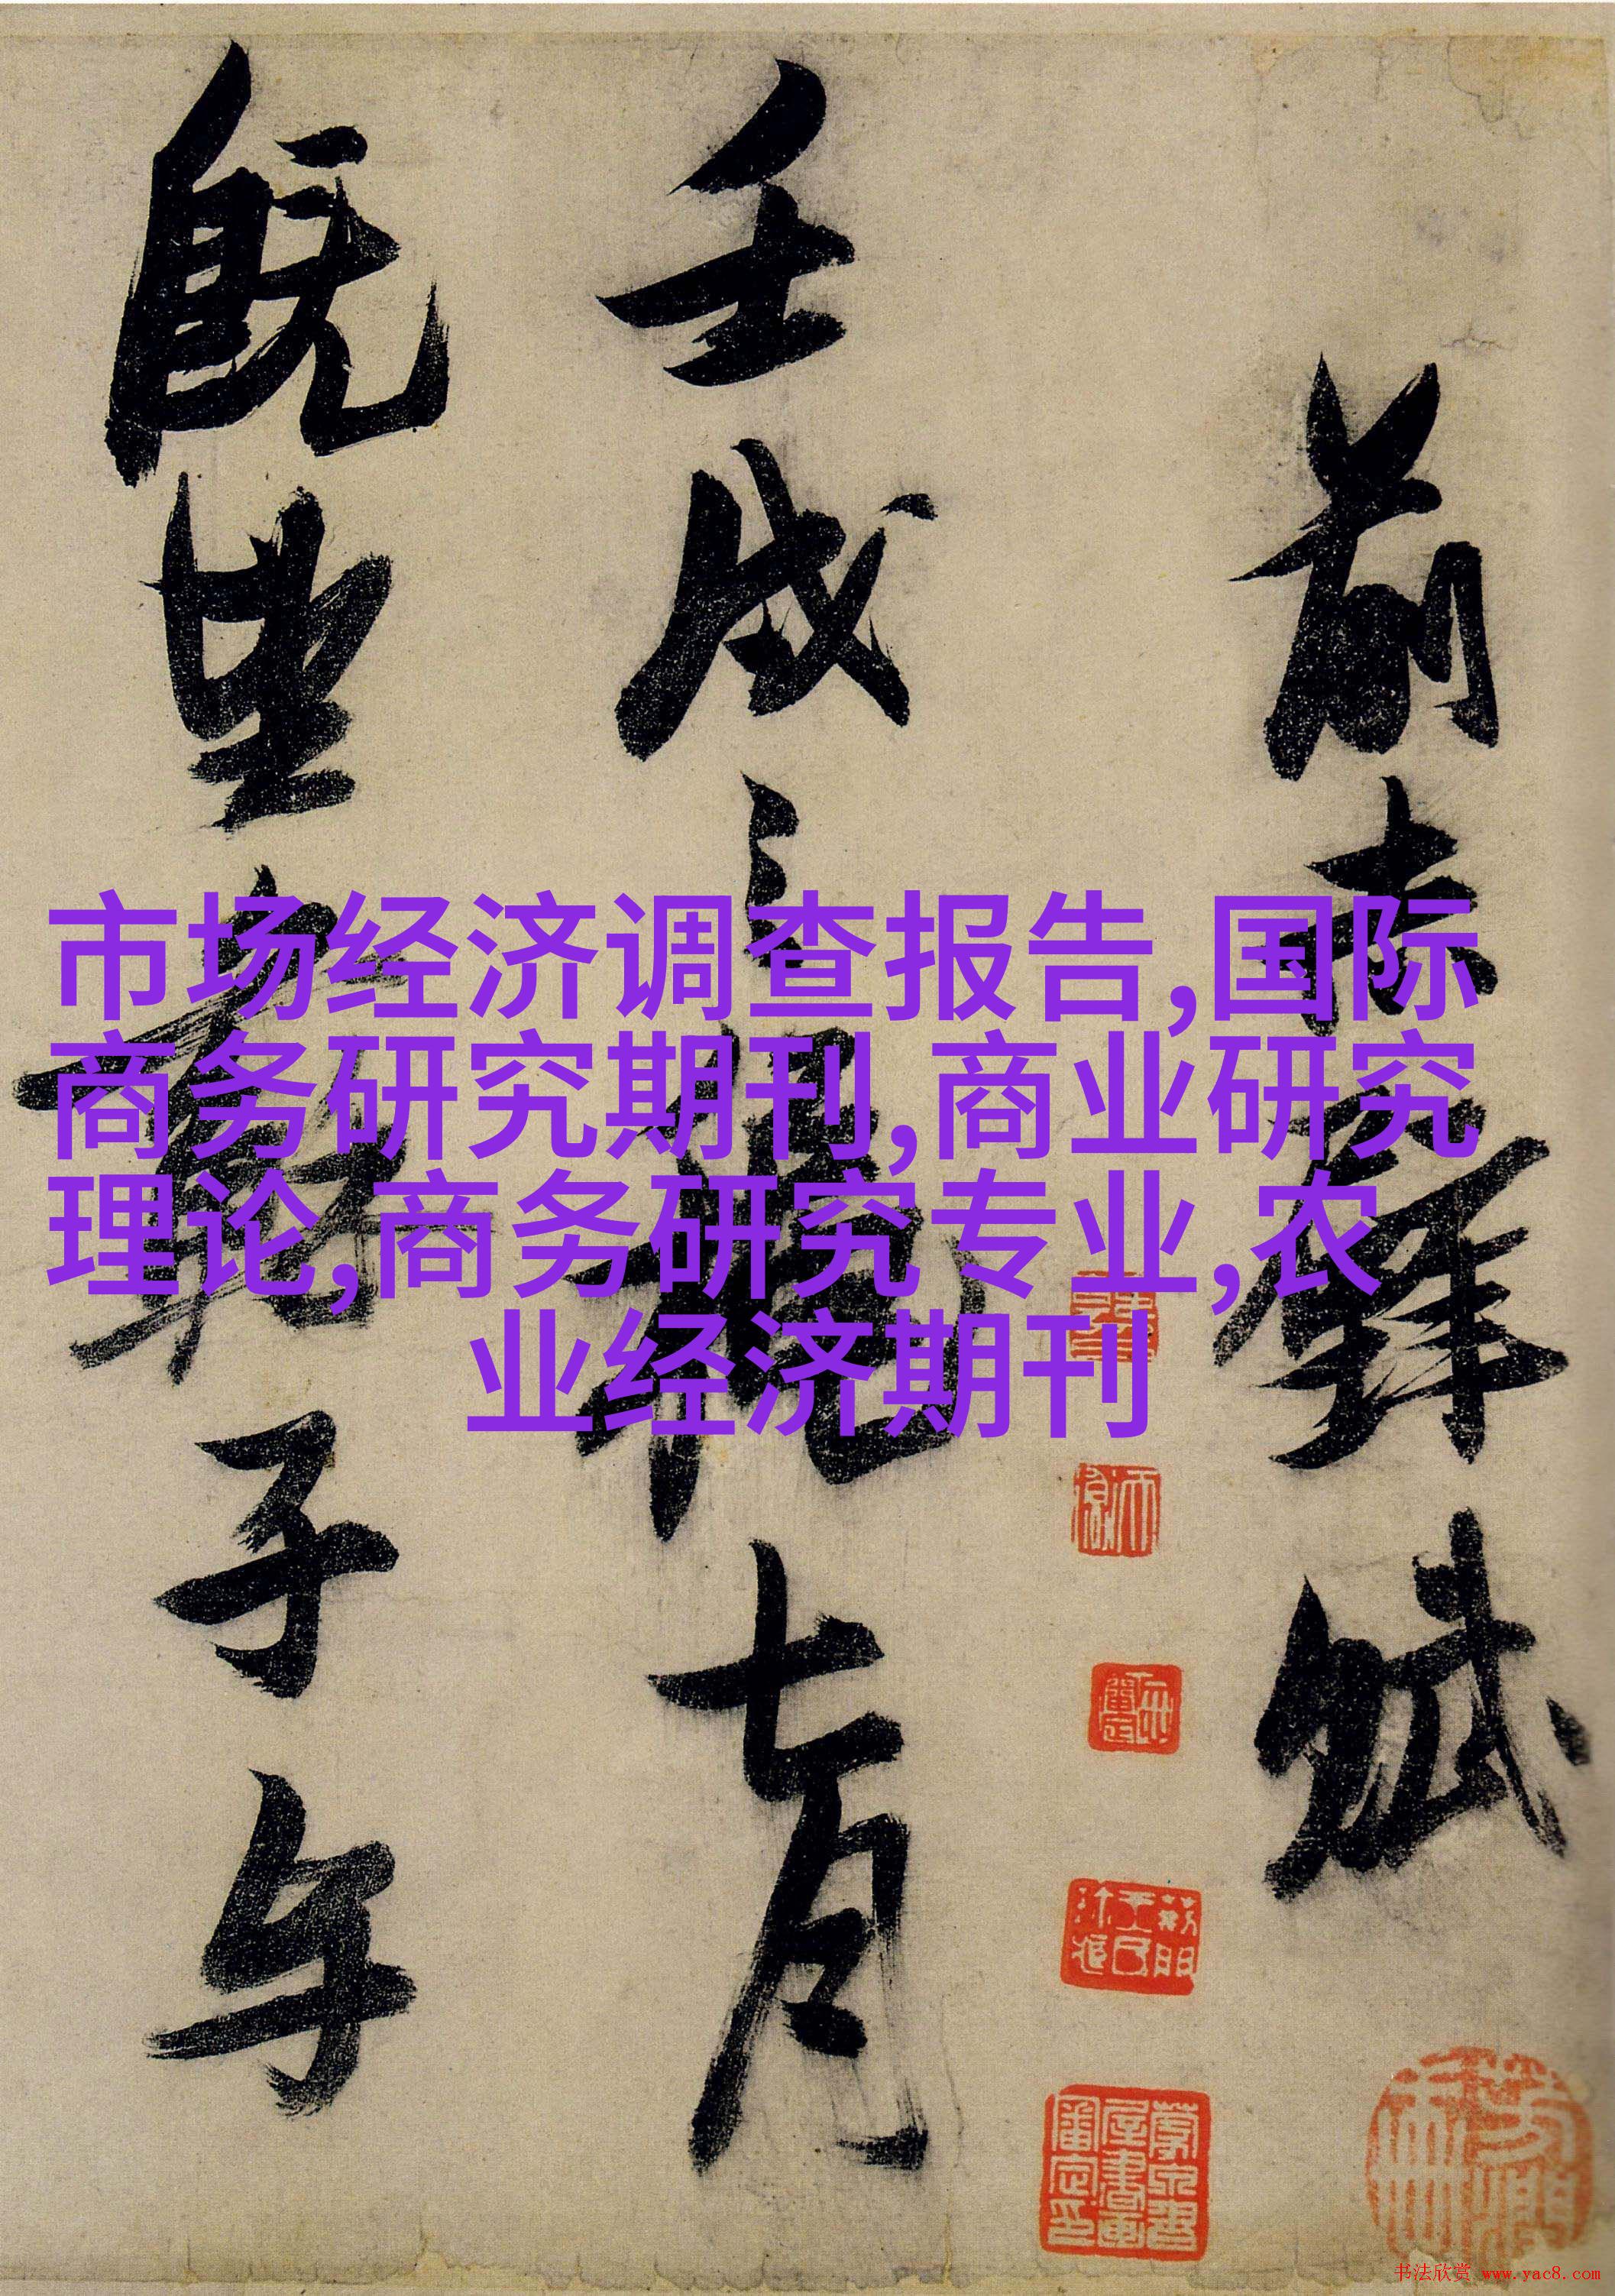 前赤壁賦
壬戌之穐七月
既望蘇子与
市场经济调查报告,国际
商务研究期刊,商业研究
理论,商务研究专业,农
业经济期刊
书法欣赏 www.yac8.com